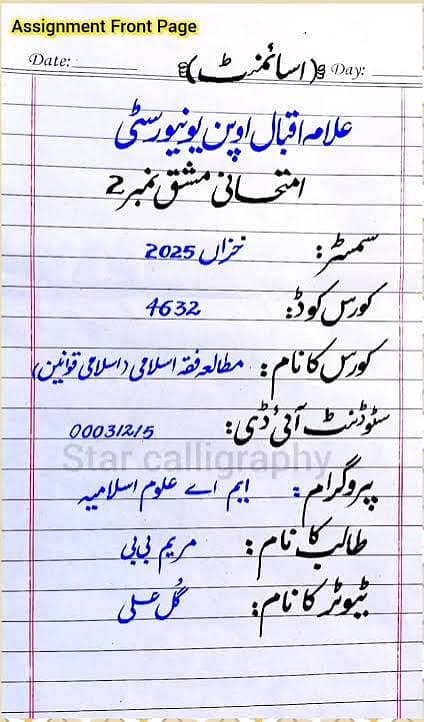 Assignment Front Page
Date: (اسائمنٹ) Day:
علامہ اقبال اوپن یونیورسٹی
امتحانی مشق نمبر 2
سمسٹر: خزاں 2025
کورس کوڈ: 4632
کورس کا نام: مطالعہ فقہ اسلامی (اسلامی قوانین)
سٹوڈنٹ آئی ڈی: 000312/5
Star calligraphy
پروگرام: ایم اے علوم اسلامیہ
طالب کا نام: مریم بی بی
ٹیوٹر کا نام: گُل علی